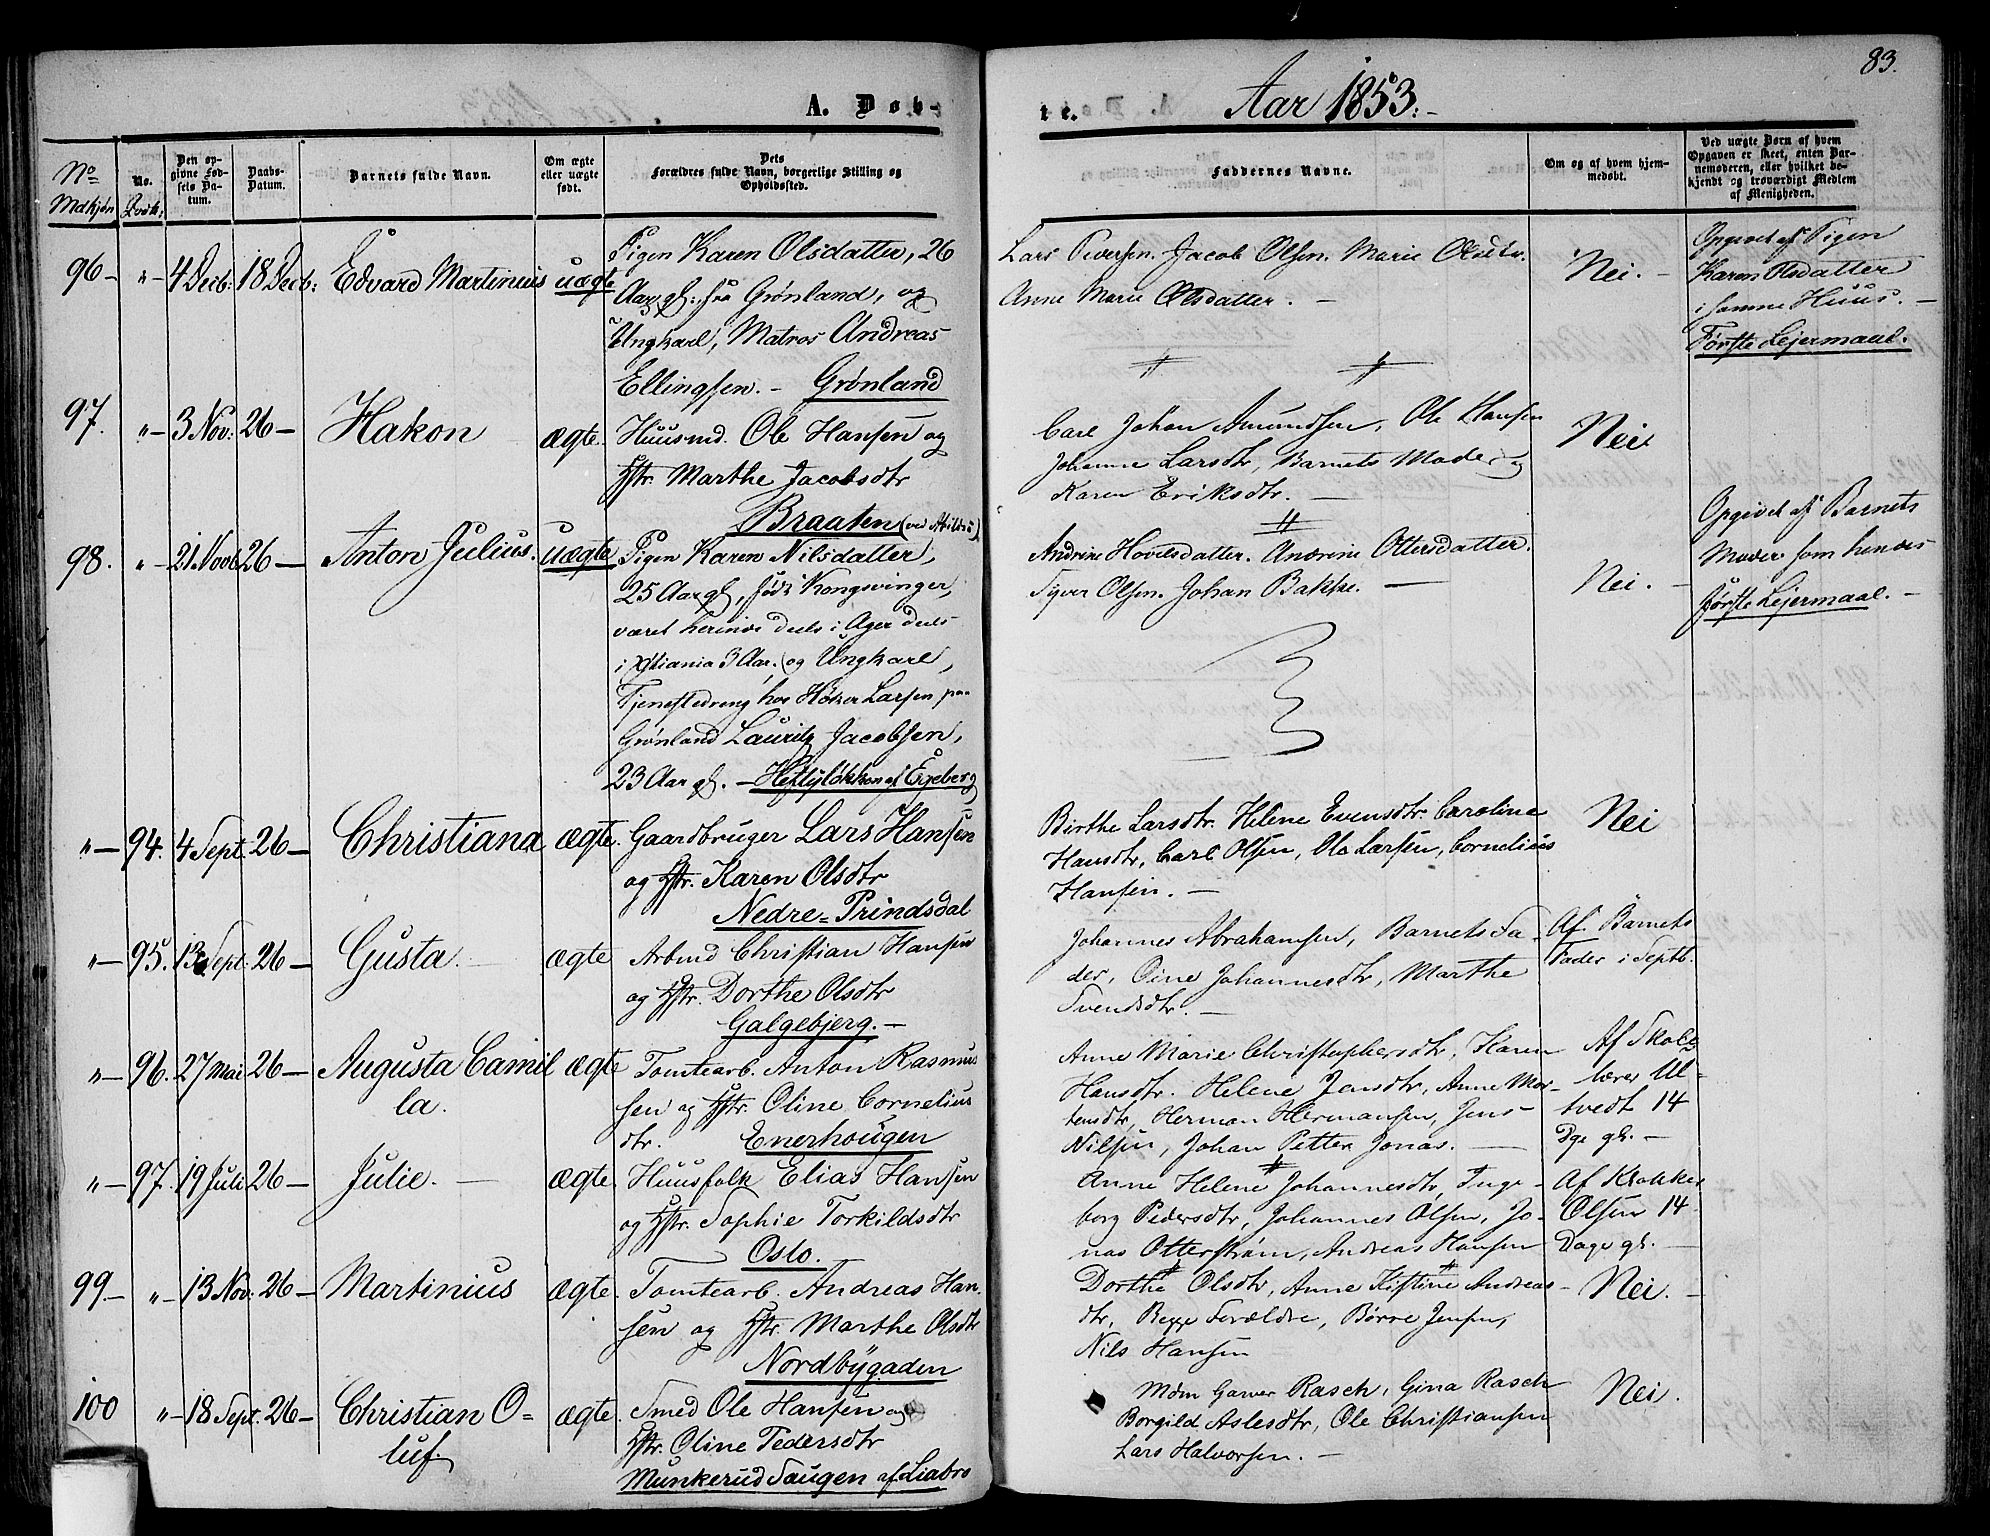 83.
A. Døb-
te.
Aar 1853.-
No Mdkjøn
No. Qvdk:
Den opgivne Fødsels Datum.
Daabs-Datum.
Barnets fulde Navn.
Om ægte eller uægte født.
Dets Forældres fulde Navn, borgerlige Stilling og Opholdssted.
Faddernes Navne.
Om og af hvem hjemmedøbt.
Ved uægte Børn af hvem Opgaven er skeet, enten Barnemoderen, eller hvilket bekjendt og troværdigt Medlem af Menigheden.
96- "- 4 Decb: 18 Decb: Edvard Martinius uægte
Pigen Karen Olsdatter, 26
Aar gl. fra Grønland, og
Ungkarl, Matros Andreas
Ellingsen. - Grønland
Lars Iversen. Jacob Olsen. Marie
Anne Marie Olsdatter. -
Nei. -
Opgivet af Pigen
Karen Olsdatter
i samme Huus. -
Første Lejermaal.
97. "- 3 Nov: 26- Hakon ægte.
Huusmd. Ole Hansen og
Hstr. Marthe Jacobsdtr
Braaten (ved Abildsø)
Carl Johan Amundsen, Ole Hansen
Johanne Larsdtr, Barnets Moder og
Karen Eriksdtr. -
Nei
98. "- 21 Novb 26- Anton Julius. uægte
Pigen Karen Nilsdatter,
25 Aar gl, født i Kongsvinger,
været herinde deels i Ager deels
i Xstiania 3 Aar. og Ungkarl,
Tjenestedreng hos Høker Larsen paa
Grønland Lauritz Jacobsen,
23 Aar gl. - Heftyeløkken af Egeberg
Andrine Hovelsdatter. Andrine Ottersdatter.
Siver Olsen. Johan Bakke. -
Nei. -
Opgivet af Barnets
Moder som hendes
første Lejermaal. -
"- 94. 4 Sept. 26- Christiana ægte.
Gaardbruger Lars Hansen
og Hstr. Karen Olsdtr
Nedre=Prindsdal
Birthe Larsdtr. Helene Evensdtr. Caroline
Hansdtr, Carl Olsen, Ole Larsen, Cornelius
Hansen. -
Nei
"- 95. 13 Sept. 26- Gusta. - ægte
Arbmd Christian Hansen
og Hstr. Dorthe Olsdtr
Galgebjerg. -
Johannes Abrahamsen, Barnets Fa-
der, Oine Johannesdtr, Marthe
Svendsdtr. -
Af Barnets
Fader i Septb.
"- 96. 27 Mai 26- Augusta Camil ægte
la.
Tomtearb. Anton Rasmus
sen og Hstr. Oline Cornelius
dtr. Enerhougen
Anne Marie Christophersdtr, Karen
Hansdtr. Helene Jensdtr, Anne Mor-
tensdtr, Herman Hermansen, Jens-
Nilsen, Johan Petter Jonas. -
Af Skole
lærer Ul-
tvedt 14
Dge gl. -
"- 97. 19 Juli 26- Julie. - ægte
Huusfolk Elias Hansen
og Hstr. Sophie Torkildsdtr
Oslo.
Anne Helene Johannesdtr, Inge-
borg Pedersdtr, Johannes Olsen, Jo-
nas Otterstrøm, Andreas Hansen
Af Klokker
Olsen 14
Dage gl. -
99.- "- 13 Nov: 26- Martinius ægte.
Tomtearb. Andreas Han-
sen og Hstr. Marthe Olsdtr
Nordbygaden
Dorthe Olsdtr, Anne Kistine Andreas-
dtr, Begge Forældre, Børre Jensen,
Nils Hansen
Nei. -
100 "- 18 Sept. 26- Christian O- ægte.
luf.
Smed Ole Hansen og
Hstr. Oline Pedersdtr
Munkerud Saugen af Liabro
Mdm Garver Rasch, Gina Rasch
Borgild Aslesdtr, Ole Christiansen
Lars Halvorsen. -
Nei.